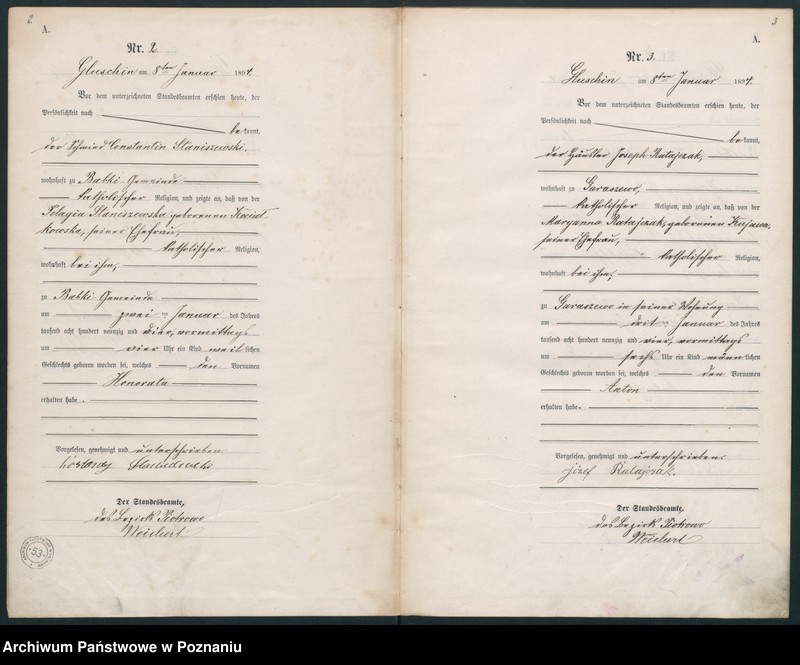 2.
A.
Nr. 2.
Gluschin am 8ten Januar 1894.
Vor dem unterzeichneten Standesbeamten erschien heute, der
Persönlichkeit nach
bekannt,
der Schmied Constantin Staniszewski.
wohnhaft zu Babki-Gemeinde
katholischer Religion, und zeigte an, daß von der
Pelagia Staniszewska geborenen
kowska, seiner Ehefrau,
katholischer Religion,
wohnhaft bei ihm,
zu Babki-Gemeinde
am zwei ten Januar des Jahres
tausend acht hundert neunzig und vier, vormittags
um vier Uhr ein Kind weiblichen
Geschlechts geboren worden sei, welches den Vornamen
Honorata
erhalten habe.
Vorgelesen, genehmigt und unterschrieben
Der Standesbeamte,
des Bezirk Piotrowo
Weichert
3
A.
Nr. 3.
Gluschin am 8ten Januar 1894.
Vor dem unterzeichneten Standesbeamten erschien heute, der
Persönlichkeit nach
bekannt,
der Häusler Joseph Ratajczak,
wohnhaft zu Garaszewo,
katholischer Religion, und zeigte an, daß von der
Maryanna Ratajczak, geborenen Kujawa,
seiner Ehefrau,
katholischer Religion,
wohnhaft bei ihm,
zu Garaszewo in seiner Wohnung
am drit ten Januar des Jahres
tausend acht hundert neunzig und vier, vormittags
um sechs Uhr ein Kind männlichen
Geschlechts geboren worden sei, welches den Vornamen
Anton
erhalten habe.
Vorgelesen, genehmigt und unterschrieben
józef Ratajczak.
Der Standesbeamte,
des Bezirk Piotrowo
Weichert
53
Archiwum Państwowe w Poznaniu